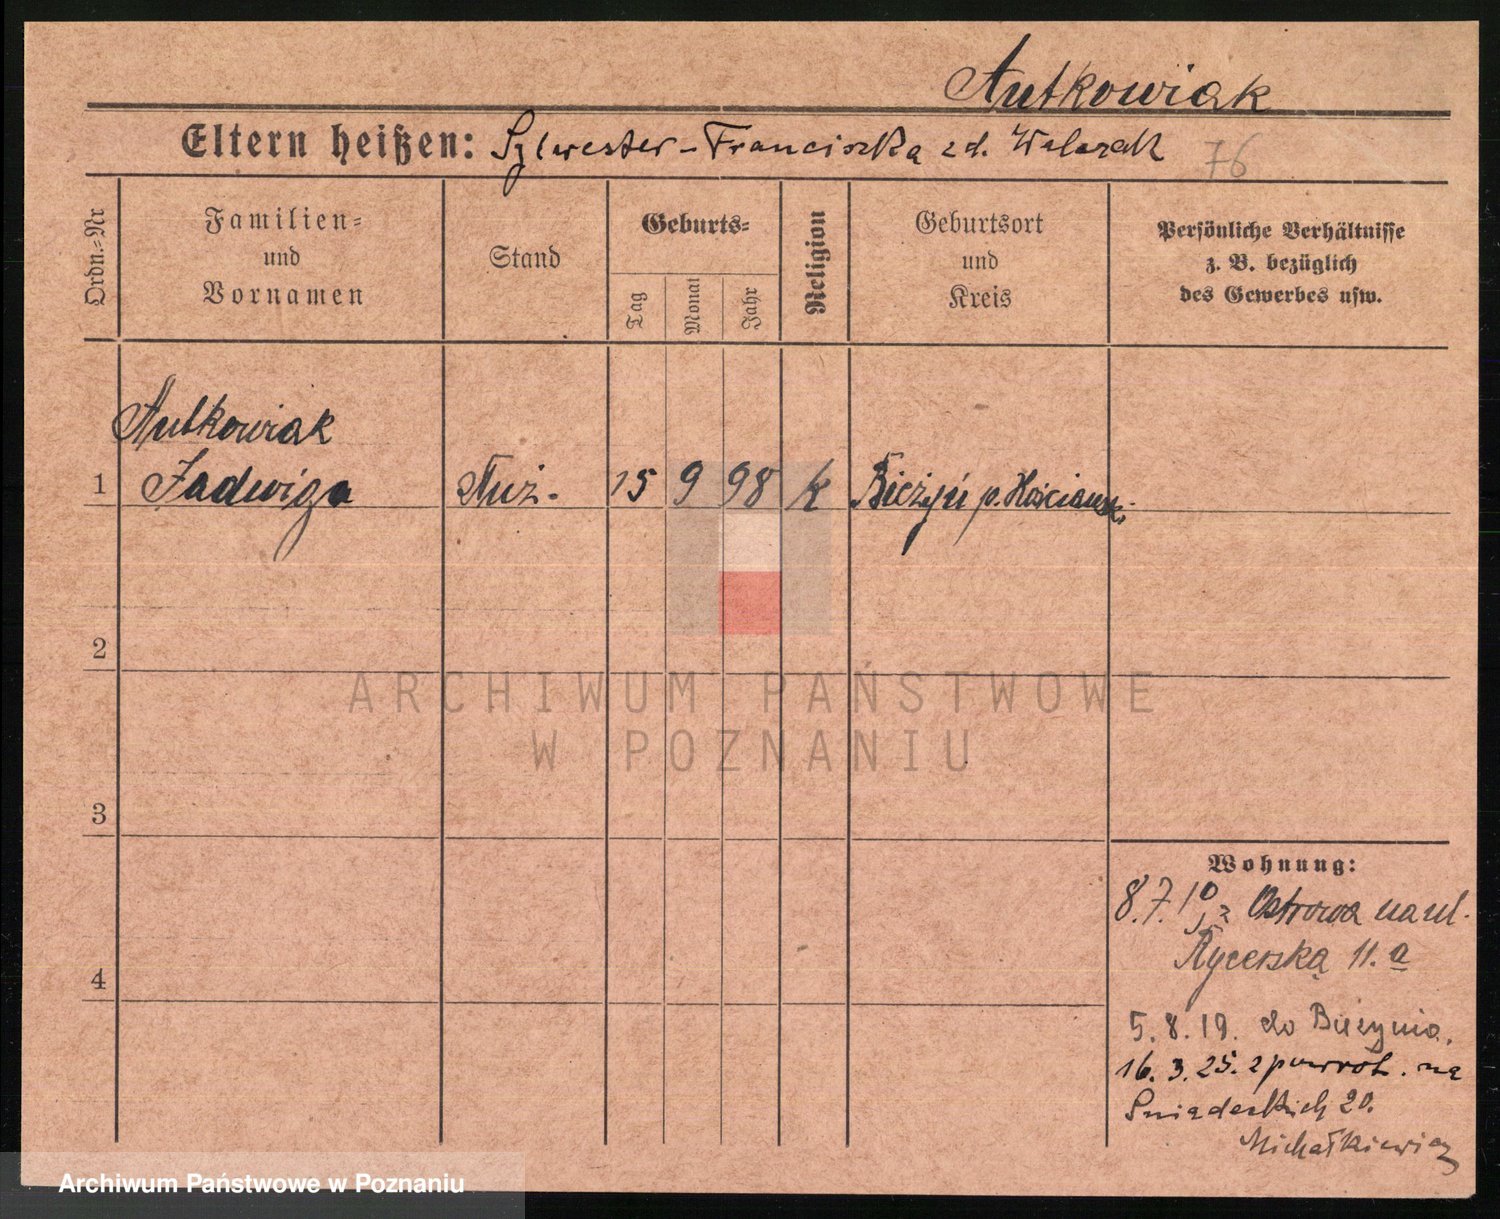 Autkowiak
Eltern heißen: Sylwester - Franciszka zd. Walczak
76
Ordn.=Nr
Familien=
und
Vornamen
Stand
Geburts=
Tag
Monat
Jahr
Religion
Geburtsort
und
Kreis
Persönliche Verhältnisse
z. B. bezüglich
des Gewerbes usw.
Autkowiak
1 Jadwiga 15 9 98 k Bieżyń p. Kościański
2
ARCHIWUM PAŃSTWOWE
W POZNANIU
3
Wohnung:
8.7. z Ostrowa na ul.
Rycerską 11.a
4
5.8.19. do Bieżynia.
16.3.25. z powrot. na
Śniadeckich 20.
Michałkiewicz
Archiwum Państwowe w Poznaniu